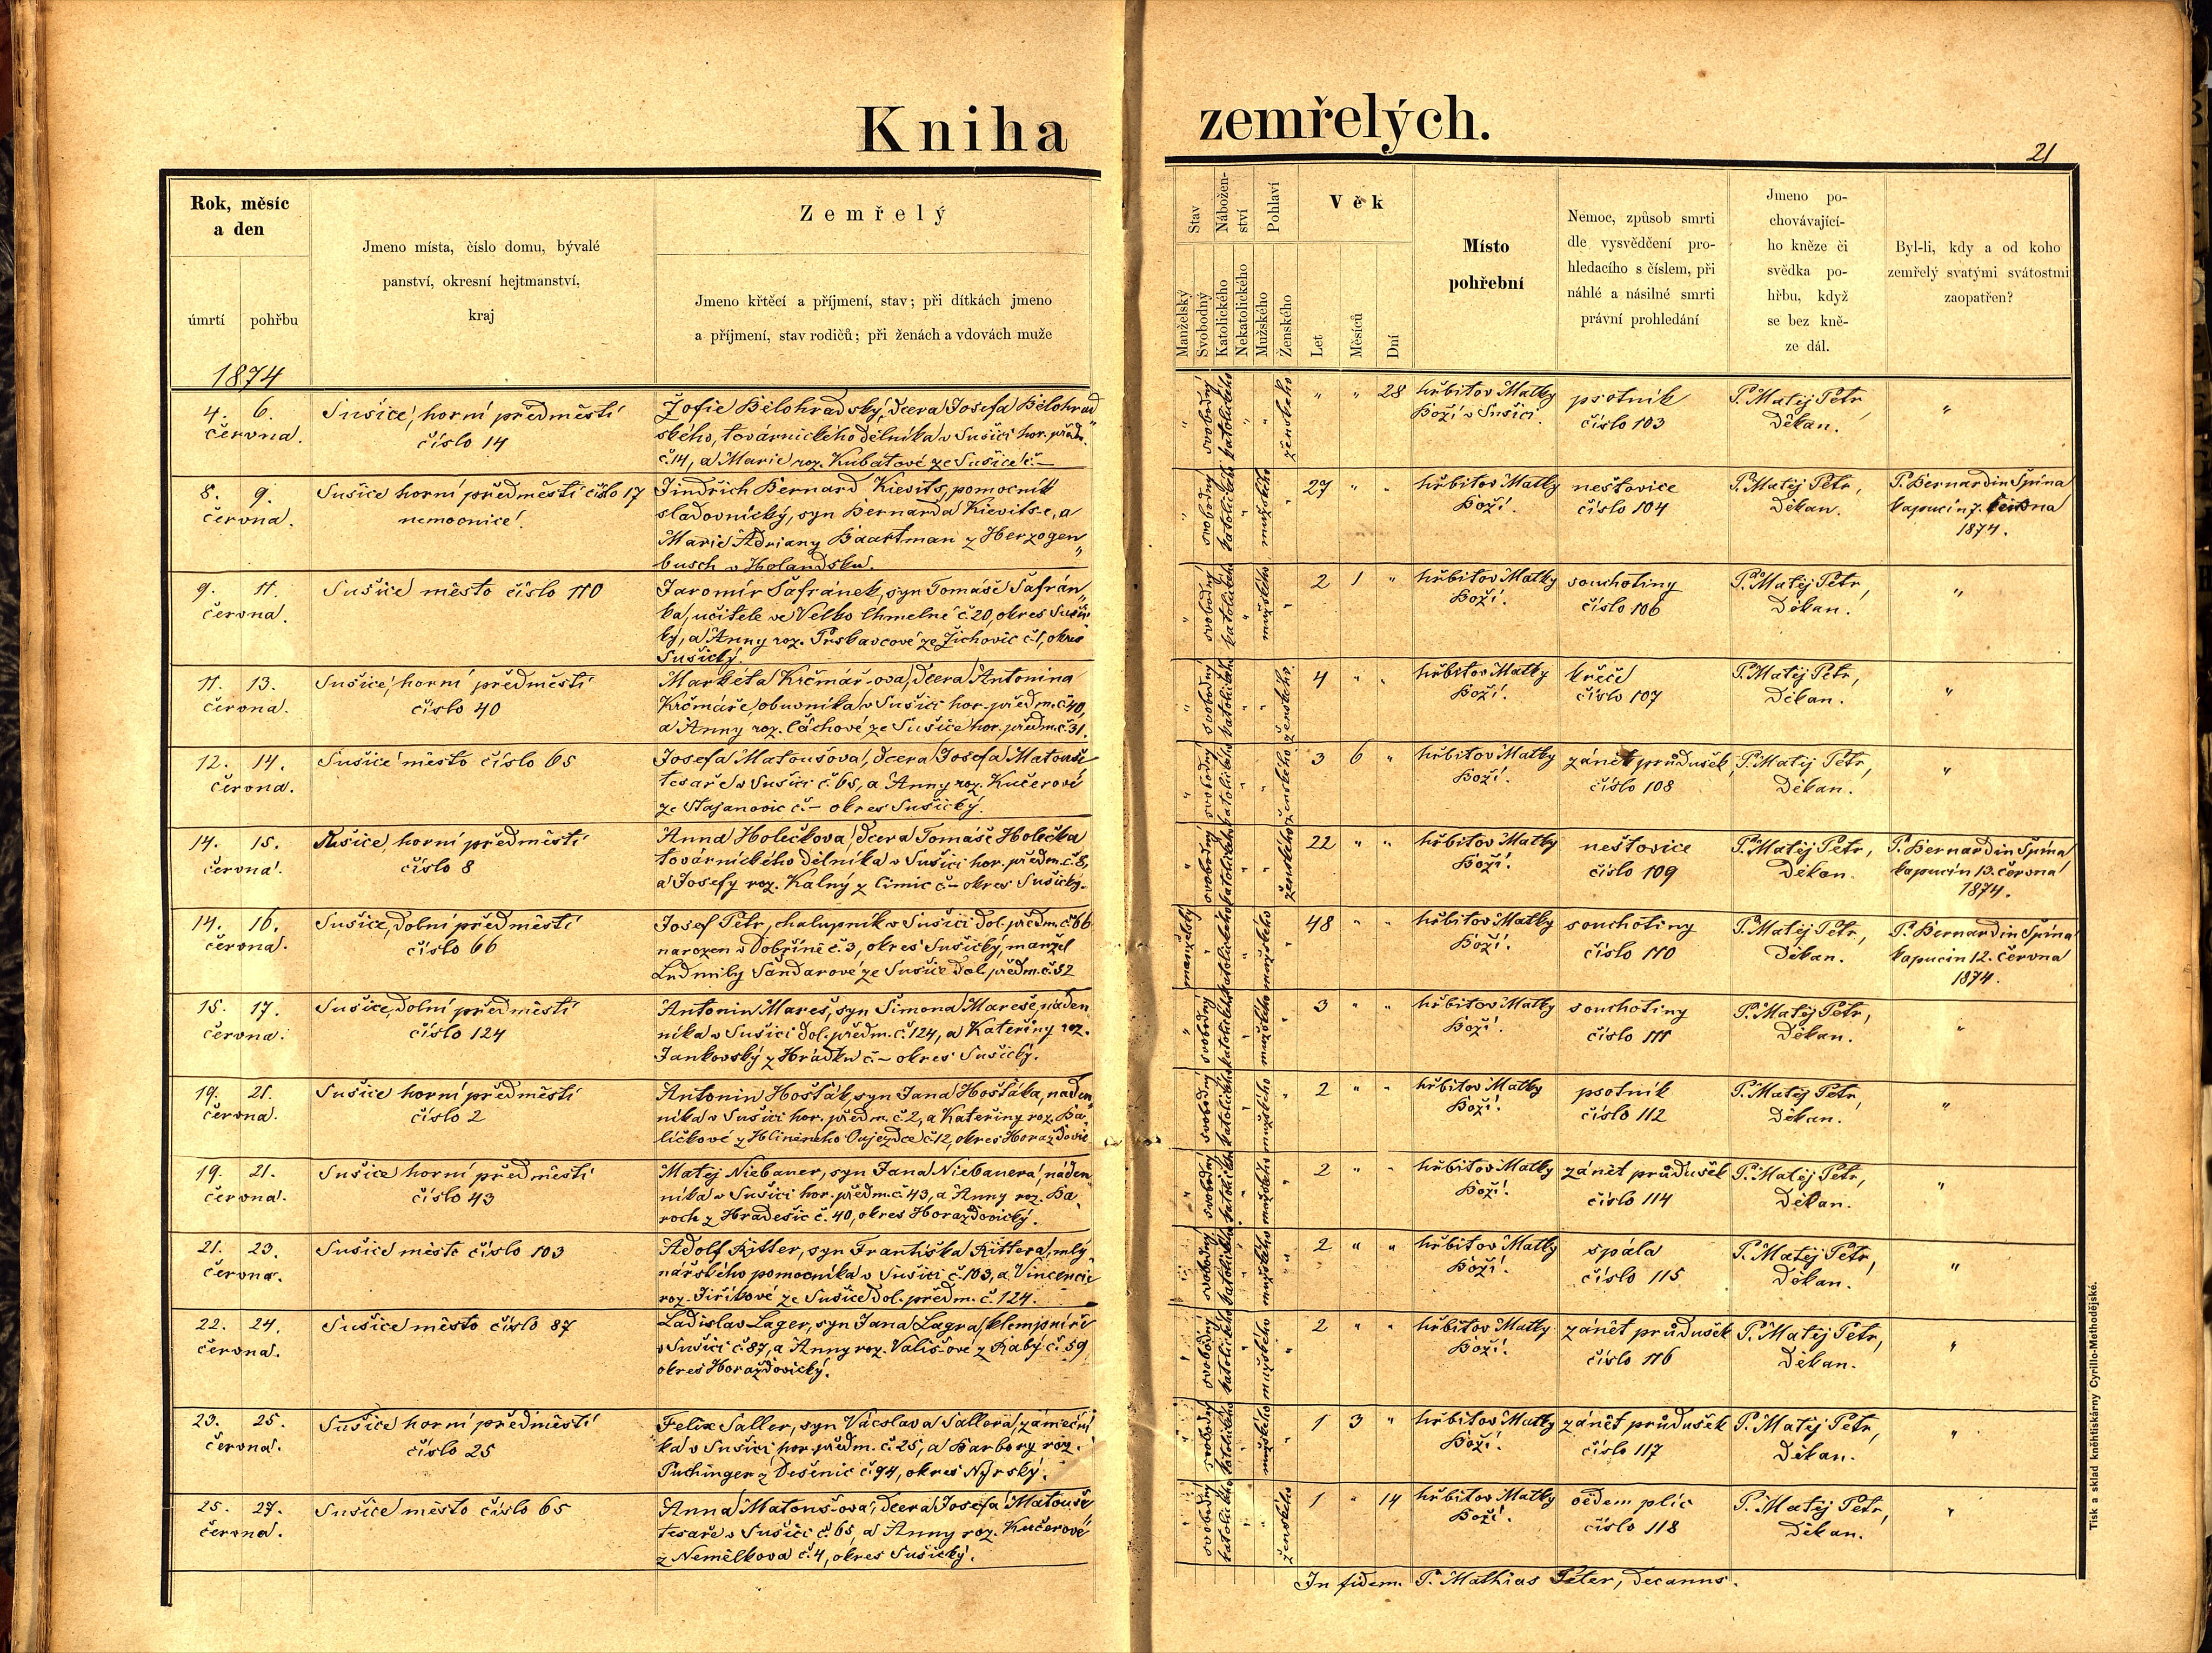 Kniha zemřelých.
21
Rok, měsíc
a den
úmrtí
pohřbu
1874
Jmeno místa, číslo domu, bývalé
panství, okresní hejtmanství,
kraj
Zemřelý
Jmeno křtěcí a příjmení, stav; při dítkách jmeno
a příjmení, stav rodičů; při ženách a vdovách muže
Stav
Nábožen-
ství
Pohlaví
Manželský
Svobodný
Katolického
Nekatolického
Mužského
Ženského
Věk
Let
Měsíců
Dní
Místo
pohřební
Nemoc, způsob smrti
dle vysvědčení pro-
hledacího s číslem, při
náhlé a násilné smrti
právní prohledání
Jmeno po-
chovávající-
ho kněze či
svědka po-
hřbu, když
se bez kně-
ze dál.
Byl-li, kdy a od koho
zemřelý svatými svátostmi
zaopatřen?
4. 6.
června.
Sušice, horní předměstí
číslo 14
Žofie Bělohradský, dcera Josefa Bělohrad„
ského, továrnického dělníka v Sušici hor. předm.
č. 14, a Marie roz. Kubátové ze Sušice č. –
" svobodný katolického " " ženského
" " 28
hřbitov Matky
Boží v Sušici.
psotník
číslo 103
P. Matěj Petr,
Děkan.
"
8. 9.
června.
Sušice horní předměstí číslo 17
nemocnice.
Jindřich Bernard Kievits, pomocník
sladovnický, syn Bernarda Kievits-e, a
Marie Adriany Baartman z Herzogen„
busch v Holandsku.
" svobodný katolického " mužského "
27 " "
hřbitov Matky
Boží.
neštovice
číslo 104
P. Matěj Petr,
Děkan.
P. Bernardin Špína
kapucín 7. června
1874.
9. 11.
června.
Sušice město číslo 110
Jaromír Šafránek, syn Tomáše Šafrán„
ka, učitele ve Velko Chmelné č. 20, okres Sušic
ký, a Anny roz. Prskavcové ze Žichovic č. 1, okres
Sušický.
" svobodný katolického " mužského "
2 1 "
hřbitov Matky
Boží.
souchotiny
číslo 106
P. Matěj Petr,
Děkan.
"
11. 13.
června.
Sušice, horní předměstí
číslo 40
Markéta Krčmář-ova, dcera Antonina
Krčmáře, obuvníka v Sušici hor. předm. č. 40,
a Anny roz. Čáchové ze Sušice hor. předm. č. 31.
" svobodný katolického " " ženského
4 " "
hřbitov Matky
Boží.
křeče
číslo 107
P. Matěj Petr,
Děkan.
"
12. 14.
června.
Sušice město číslo 65
Josefa Matoušova, dcera Josefa Matouše
tesaře v Sušici č. 65, a Anny roz. Kučerové
ze Stajanovic č. – okres Sušický.
" svobodný katolického " " ženského
3 6 "
hřbitov Matky
Boží.
zánět průdušek
číslo 108
P. Matěj Petr,
Děkan.
"
14. 15.
června.
Sušice, horní předměstí
číslo 8
Anna Holečkova, dcera Tomáše Holečka
továrnického dělníka v Sušici hor. předm. č. 8,
a Josefy roz. Kalný z Čimic č. – okres Sušický.
" svobodný katolického " " ženského
22 " "
hřbitov Matky
Boží.
neštovice
číslo 109
P. Matěj Petr,
Děkan.
P. Bernardin Špína
kapucín 13. června
1874.
14. 16.
června.
Sušice, dolní předměstí
číslo 66
Josef Petr, chalupník v Sušici dol. předm. č. 66
narozen v Dobříně č. 3, okres Sušický, manžel
Ludmily Šandarové ze Sušice dol. předm. č. 32
manželský " katolického " mužského "
48 " "
hřbitov Matky
Boží.
souchotiny
číslo 110
P. Matěj Petr,
Děkan.
P. Bernardin Špína
kapucín 12. června
1874.
15. 17.
června.
Sušice, dolní předměstí
číslo 124
Antonin Mareš, syn Šimona Mareše, náden
níka v Sušici dol. předm. č. 124, a Kateřiny roz.
Jankovský z Hrádku č. – okres Sušický.
" svobodný katolického " mužského "
3 " "
hřbitov Matky
Boží.
souchotiny
číslo 111
P. Matěj Petr,
Děkan.
"
19. 21.
června.
Sušice horní předměstí
číslo 2
Antonin Hošták, syn Jana Hoštáka, náden„
níka v Sušici hor. předm. č. 2, a Kateřiny roz. Ba„
ličkové z Hliněného Oujezdce č. 12, okres Horažďovic
svobodný katolického " mužského "
2 " "
hřbitov Matky
Boží.
psotník
číslo 112
P. Matěj Petr,
Děkan.
"
19. 21.
června.
Sušice horní předměstí
číslo 43
Matěj Niebauer, syn Jana Niebauera, náden„
níka v Sušici hor. předm. č. 43, a Anny roz. Ba„
roch z Hradešic č. 40, okres Horažďovický.
" svobodný katolického " mužského "
2 " "
hřbitov Matky
Boží.
zánět průdušek
číslo 114
P. Matěj Petr,
Děkan.
"
21. 23.
června.
Sušice město číslo 103
Adolf Ritter, syn Františka Rittera, mly„
nářského pomocníka v Sušici č. 103, a Vincencie
roz. Jiříkové ze Sušice dol. předm. č. 124.
" svobodný katolického " mužského "
2 " "
hřbitov Matky
Boží.
spála
číslo 115
P. Matěj Petr,
Děkan.
"
22. 24.
června.
Sušice město číslo 87
Ladislav Lager, syn Jana Lagra, klempíře
v Sušici č. 87, a Anny roz. Vališ-ové z Rabý č. 59
okres Horažďovický.
" svobodný katolického " mužského "
2 " "
hřbitov Matky
Boží.
zánět průdušek
číslo 116
P. Matěj Petr,
Děkan.
"
23. 25.
června.
Sušice horní předměstí
číslo 25
Felix Saller, syn Václava Sallera, zámeční„
ka v Sušici hor. předm. č. 25, a Barbory roz.
Puchinger z Dešenic č. 94, okres Nyrský.
" svobodný katolického " mužského "
1 3 "
hřbitov Matky
Boží.
zánět průdušek
číslo 117
P. Matěj Petr,
Děkan.
"
25. 27.
června.
Sušice město číslo 65
Anna Matouš-ova, dcera Josefa Matouše
tesaře v Sušici č. 65, a Anny roz. Kučerové
z Nemělkova č. 4, okres Sušický.
" svobodný katolického " " ženského
1 " 14
hřbitov Matky
Boží.
oedem plic
číslo 118
P. Matěj Petr,
Děkan.
"
In fidem. P. Mathias Peter, decanus.
Tisk a sklad kněhtiskárny Cyrillo-Methodějské.